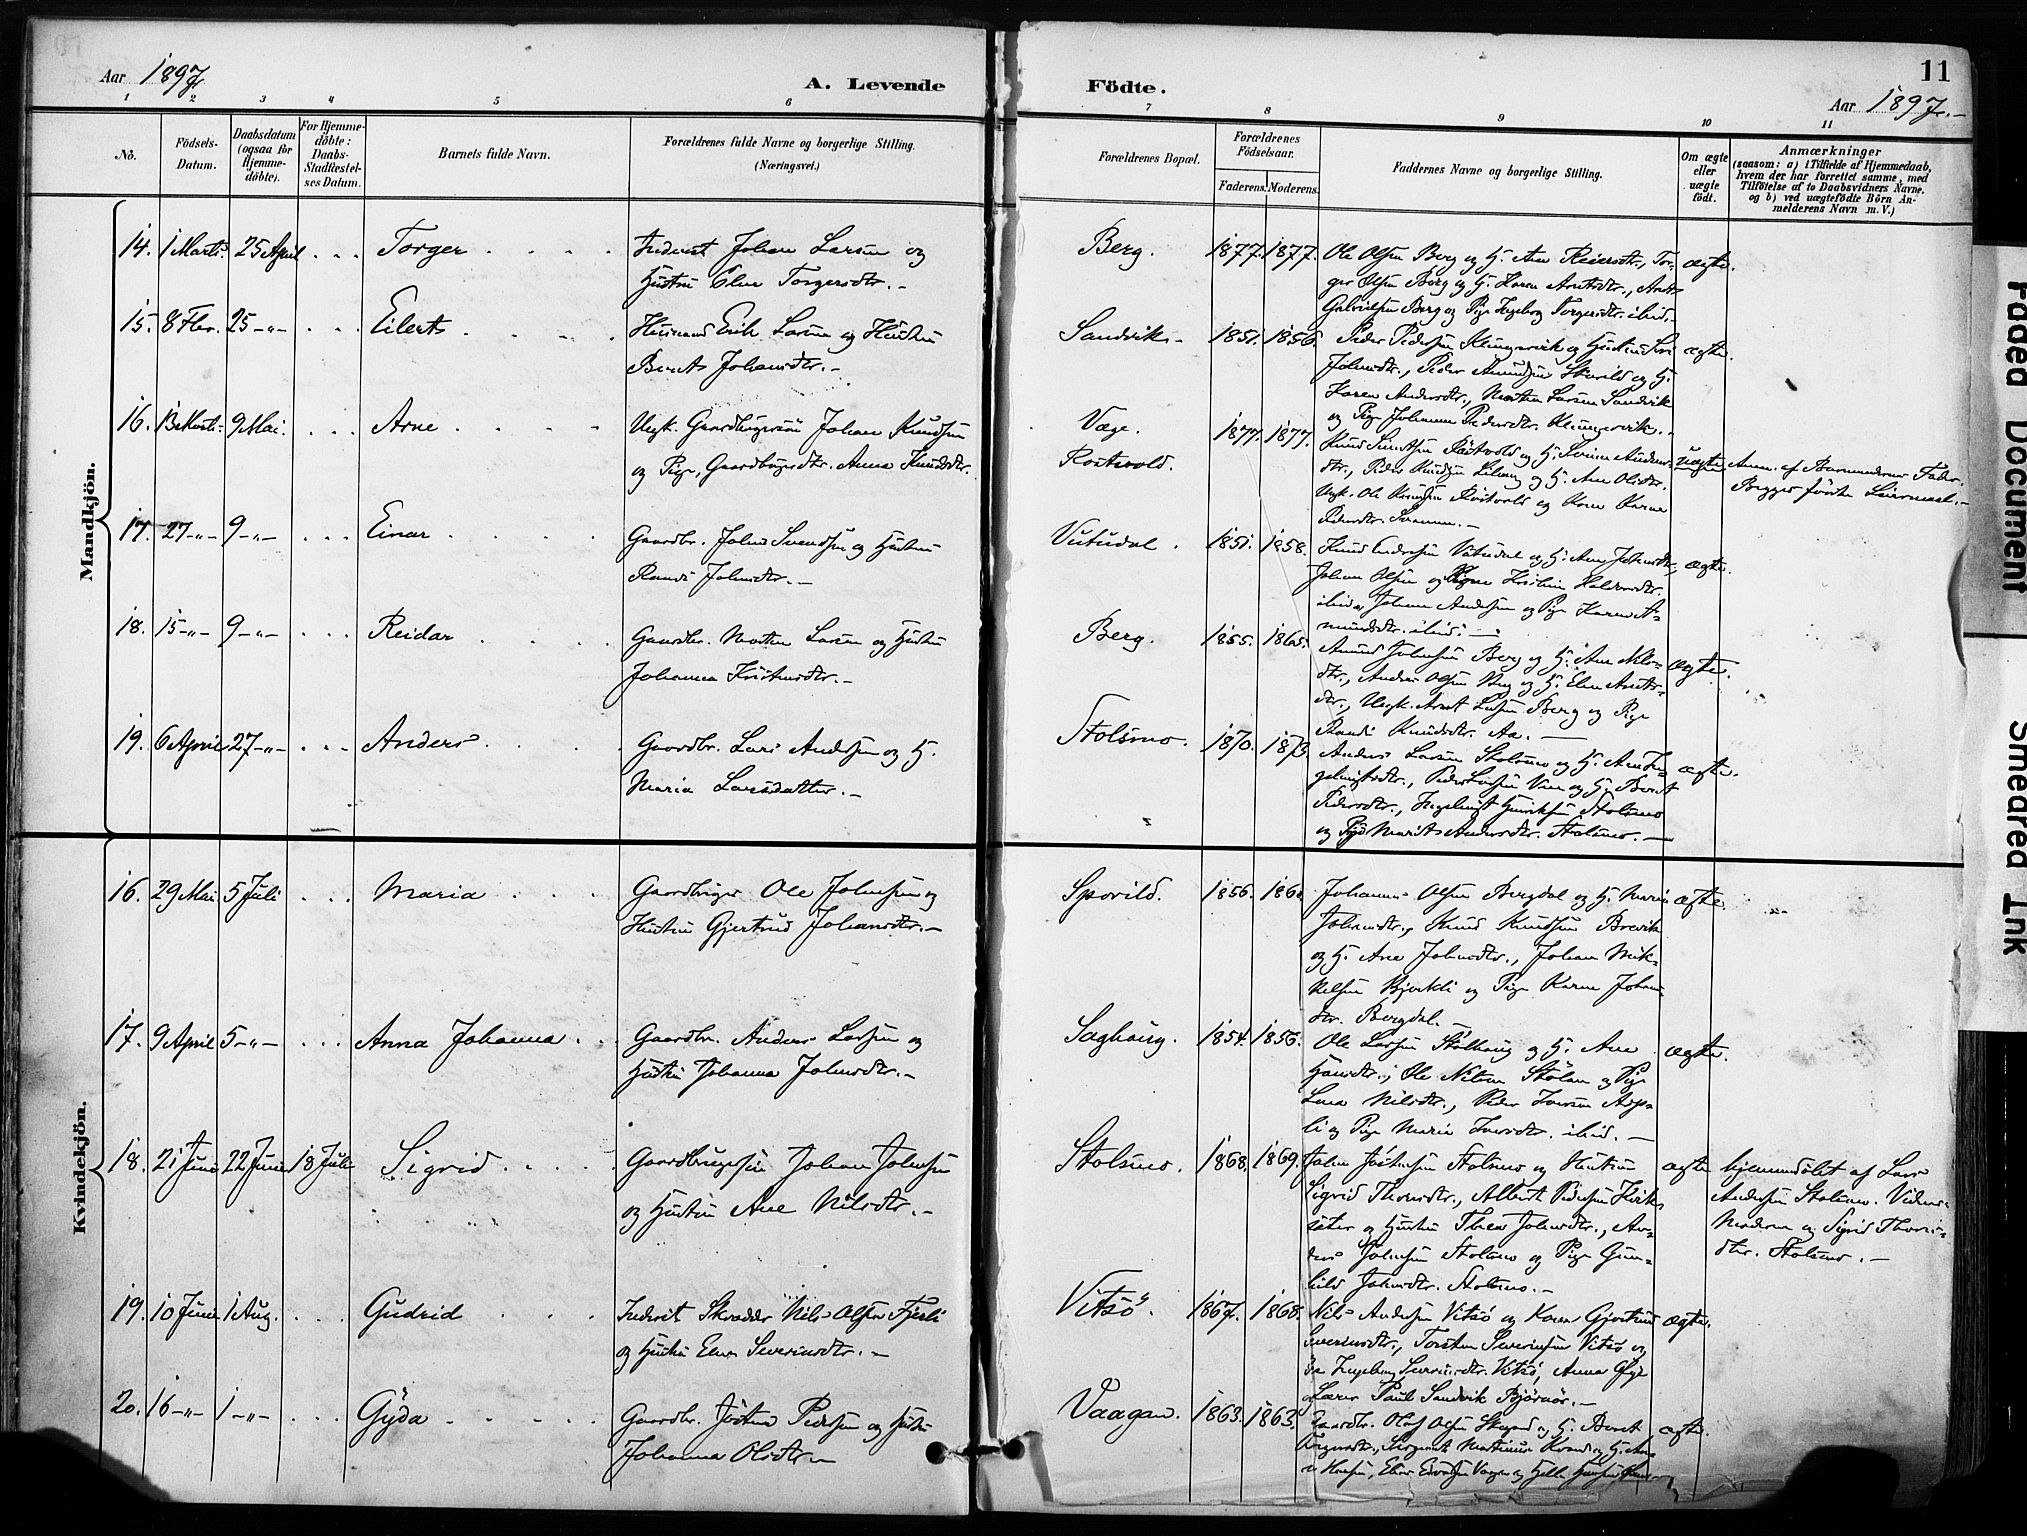 11
Aar 1897
A. Levende
Födte.
Aar 1897.-
1 2 3 4 5 6 7 8 9 10 11
No.
Födsels-Datum.
Daabsdatum (ogsaa for Hjemme-döbte).
For Hjemme-döbte: Daabs-Stadfæstel-ses Datum.
Barnets fulde Navn.
Forældrenes fulde Navne og borgerlige Stilling.
(Næringsvei.)
Forældrenes Bopæl.
Forældrenes Födselsaar.
Faderens. Moderens.
Faddernes Navne og borgerlige Stilling.
Om ægte eller uægte födt.
Anmærkninger
(saasom: a) i Tilfælde af Hjemmedaab,
hvem der har forrettet samme, med
Tilföielse af to Daabsvidners Navne,
og b) ved uægtefödte Börn An-
melderens Navn m. V.)
Mandkjön.
14. 1 Marts 25 April . . . Torger . . . . Inderst Johan Larsen og
Hustru Elen Torgersdtr. -
Berg. 1877. 1877. Ole Olsen Berg og H. Ane Reiersdtr., Tor-
ger Olsen Berg og H. Karen Arntsdtr., Arnt
Berg og Pige Ingeborg Torgersdtr. ibid. -
ægte.
15. 8 Fbr. 25 -"- . . . Eilert . . . . Husmand Erik Larsen og Hustru
Berit Johansdtr. -
Sandvik - 1851. 1856. Peder Pedersen Klungervik og Hustru Siri
Johnsdtr., Peder Amundsen Skorild og H.
Karen Andersdtr., Morten Larsen Sandvik
og Pige Johanna Pedersdtr. Klungervik. -
ægte.
16. 13 Marts. 9 Mai. . . . Arne . . . . Ungk. Gaardbrugersön Johan Knudsen
og Pige, Gaardbrugerdtr. Anna Knudsdtr.
Vage.
Rostvold.
1877. 1877. Knud Rostvold og H. Anders-
dtr., Peder Knudsen og H. Ane Olsdtr.
Ungk. Ole Knudsen Rostvold og Kone Karen
Pedersdtr.
uægte. Anm. af Barnemoderens Fader.
Begges förste Leiermaal. -
17. 27 -"- 9 -"- . . . Einar . . . . Gaardbr. John Svendsen og Hustru
Randi Johnsdtr. -
Vutudal . 1851. 1858. Knud Endresen Vutudal og H. Ane Johnsdtr.,
Johan Olsen og Kone
ibid., Johan Andersen og Pige Karen A-
mundsdtr. ibid. -
ægte.
18. 15 -"- 9 -"- . . . Reidar . . . . Gaardbr. Morten Larsen og Hustru
Johanna Kristensdtr. -
Berg. 1855. 1865. Amund Johnsen Berg og H. Ane Nils-
dtr., Anders Olsen Berg og H. Elen Arnts-
dtr., Ungk. Arnt Larsen Berg og Pige
Randi Knudsdtr. Aa. -
ægte.
19. 6 April 27 -"- . . . Anders . . . Gaardbr. Lars Andersen og H.
Maria Larsdatter. -
Stolsmo. 1870. 1873. Anders Larsen Stolsmo og H. Ane In-
gebrigtsdtr., Peder Larsen og H. Berit
Pedersdtr., Ingebrigt Henriksen Stolsmo
og Pige Marit Andersdtr. Stolsmo. -
ægte.
Kvindekjön.
16. 29 Mai 5 Juli . . . Maria . . . Gaardbruger Ole Johnsen og
Hustru Gjertrud Johansdtr. -
Sporild. 1856. 186 Johannes Olsen Bergdal og H. Maria
Johnsdtr., Knud Knudsen Brevik
og H. Ane Johnsdtr., Johan Mik-
kelsen Bjerkli og Pige Karen Johans-
dtr. Bergdal. -
ægte.
17. 9 April 5 -"- . . . Anna Johanna . . Gaardbr. Anders Larsen og
Hustru Johanna Johnsdtr. -
Saghaug. 1854. 1856. Ole Larsen Stölhaug og H. Ane
Hansdtr., Ole Nilsen Stölan og Pige
Lena Nilsdtr., Peder Iversen Asp-
li og Pige Maria Iversdtr. ibid. -
ægte.
18. 21 Juni 22 Juni 18 Juli Sigrid . . . . Gaardbrugersön Johan Johnsen
og Hustru Ane Nilsdtr. -
Stolsmo. 1868. 1869. John Jostensen Stolsmo og Hustru
Sigrid Thoresdtr., Albert Pedersen Kirk-
sæter og Hustru Thea Johnsdtr., An-
ders Johnsen Stolsmo og Pige Gun-
hild Johnsdtr. Stolsmo. -
ægte hjemmedöbt af Lars
Andersen Stolsmo. Vidner
Moderen og Sigrid Thores-
dtr. Stolsmo. -
19. 10 Juni 1 Aug. . . . Gudrid . . . Inderst Skrædder Nils Olsen Fjerli
og Hustru Elen Severinsdtr. -
Vitsö. 1867. 1868. Nils Andersen Vitsö og Kone Gjertrud
Severinsdtr., Torsten Severinsen Vitsö og
Ingeborg Severinsdtr. Vitsö, Anna
Lærer Paul Sandvik Björnör. -
ægte.
20. 16 -"- 1 -"- . . . Gyda . . . . Gaardbr. Josten Pedersen og Hustru
Johanna Olsdtr. -
Vaagan. 1863. 1863. Gaardbr. Oluf Olsen og H. Berit
Sergeant Martinus og H.
ægte.
Faded Document
Smeared Ink